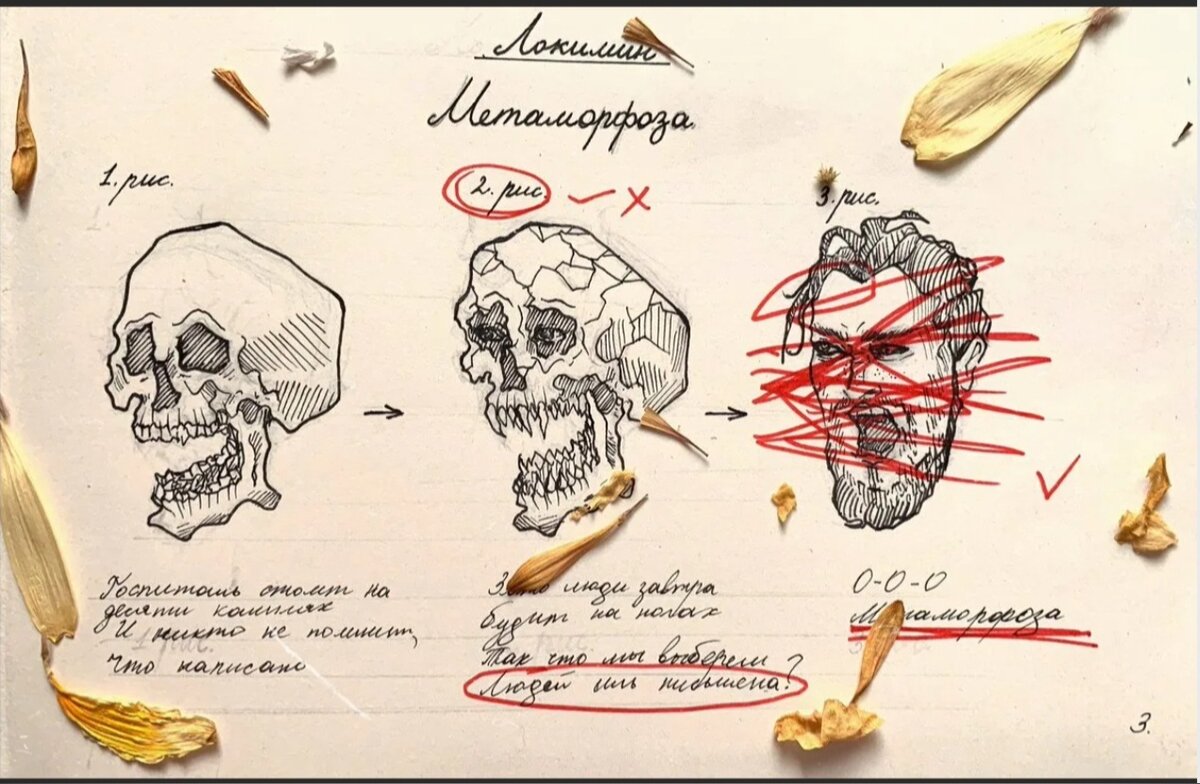 Локимин
Метаморфоза
1. рис.
2. рис.
3. рис.
Госпиталь стоит на
десяти камнях
И никто не помнит,
Что написано
Зато люди завтра
будут на ногах
Так что мы выберем?
Людей иль письмена?
О-О-О
Метаморфоза
3.